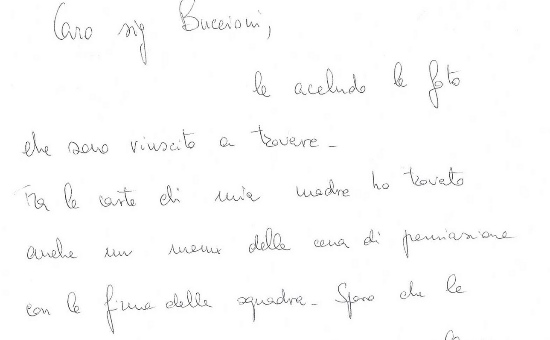 Caro sig Buccioni,
le accludo le foto
che sono riuscito a trovare -
Tra le carte di mia madre ho trovato
anche un menu della cena di premiazione
con le firme della squadra - Spero che le